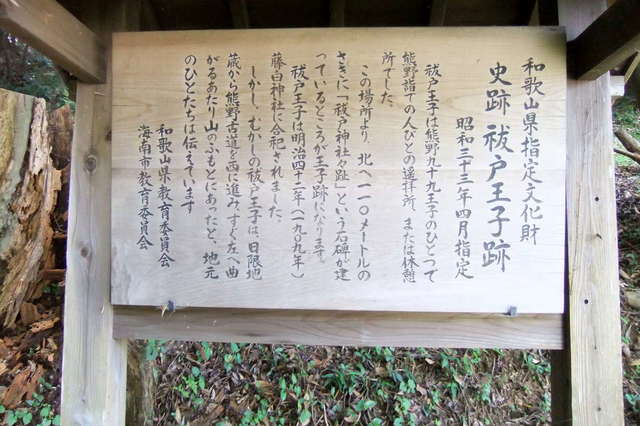 和歌山県指定文化財
史跡 祓戸王子跡
昭和三十三年四月指定
祓戸王子は熊野九十九王子のひとつで
熊野詣での人びとの遥拝所、または休憩
所でした。
この場所より、北へ一一〇メートルの
さきに「祓戸神社夕趾」という石碑が建
っているところが王子跡になります。
祓戸王子は明治四十二年(一九〇九年)
藤白神社に合祀されました。
しかし、むかしの祓戸王子は、日限地
蔵から熊野古道を西に進み、すぐ左へ曲
がるあたり山のふもとにあったと、地元
のひとたちは伝えています
和歌山県教育委員会
海南市教育委員会